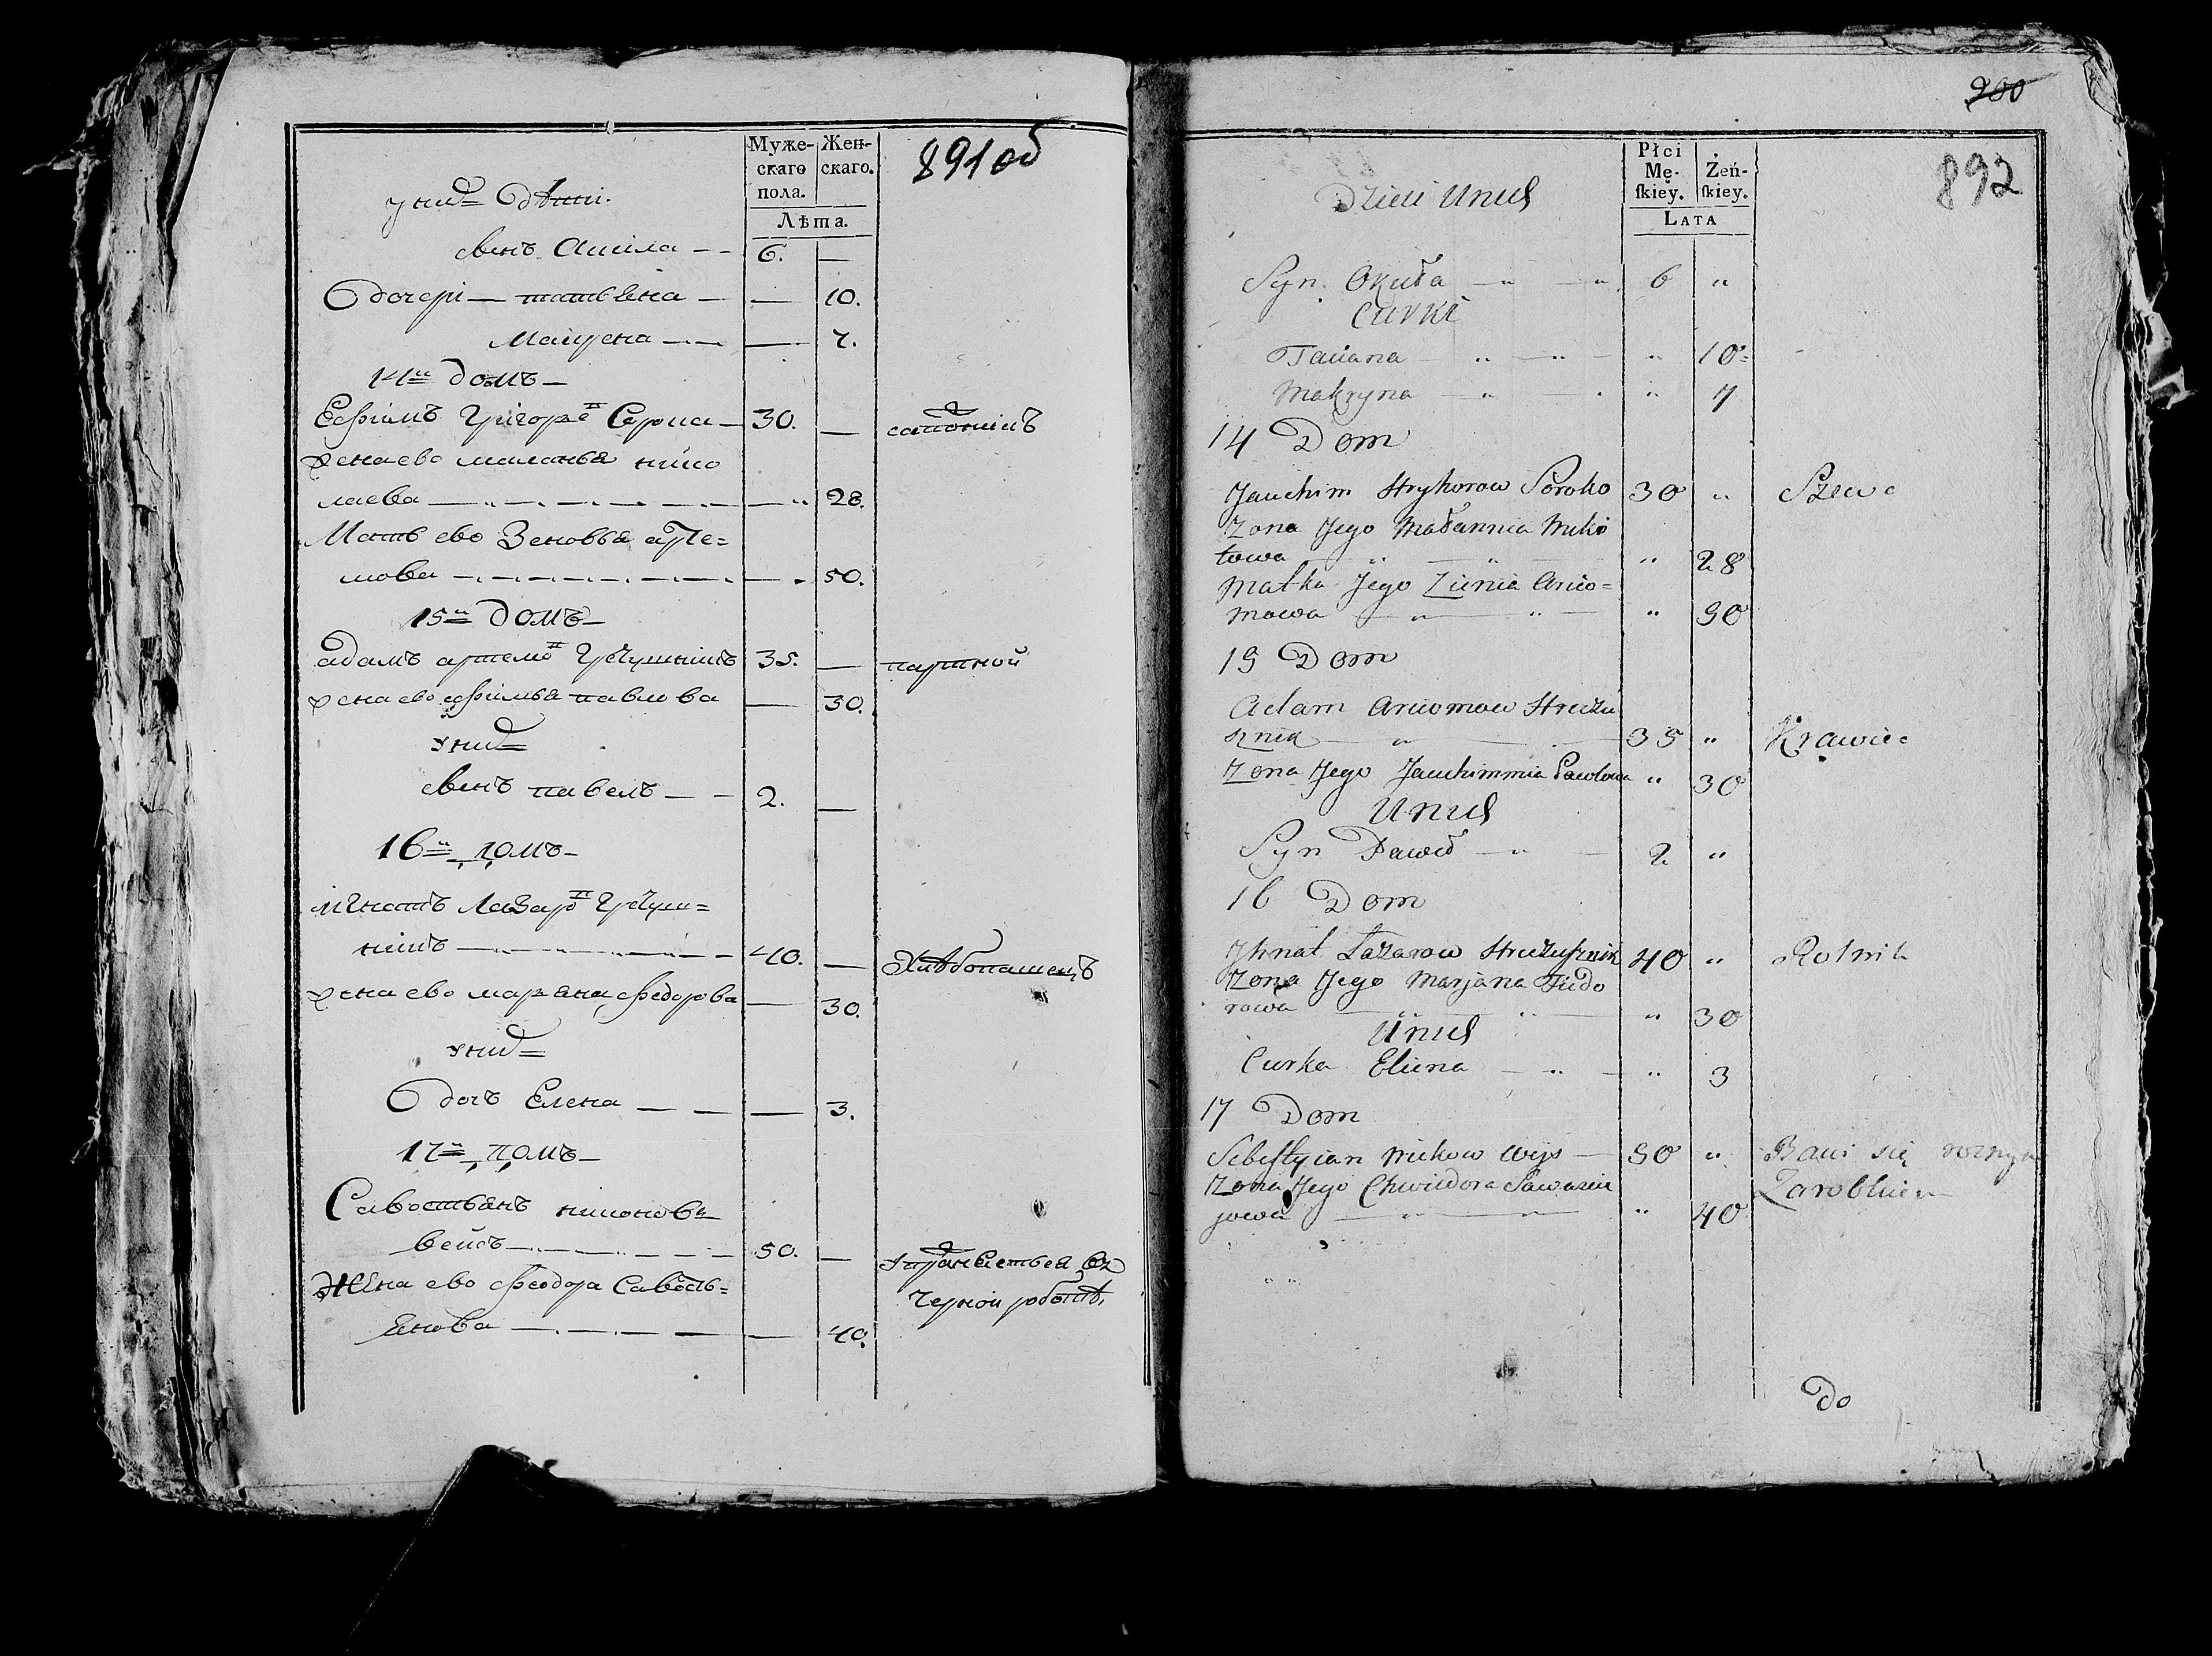 Муже-
скаго
пола.
Жен-
скаго.
Лѣта.
891 об
у нихъ Дѣти.
сынъ Акила — — 6. —
Дочери — татьяна — — 10.
Макрена — — — 7.
14й домъ —
Ефимъ Григорьевъ Сорока — 30. — сапожникъ
жена ево маланья нико
лаева — — 28.
Мать ево Зеновья арте=
мова — — 50.
15й домъ —
адамъ артемовъ 35. — партной
жена ево ефимья павлова — 30.
у них
сынъ павелъ — — 2. —
16й домъ —
игнатъ Лазаровъ
никъ — 40. — Хлѣбопашецъ
жена ево марьяна федорова — 30.
у них
Дочь Елена — — — 3.
17й домъ —
Савостьянъ никоновъ
вейсъ — 50. — упражняетъся въ
Жена ево феодора Савость= черной работѣ.
янова — — 40.
200
892
Płci
Mę-
skiey.
Żeń-
skiey.
LATA
Dzieci Unich
Syn Okuła — 6 "
Curki
Taciana — " 10
Makryna — " 7
14 Dom
Jauchim Hryhorow Soroko 30 " Szewc
Zona Jego Małannia Miko
łowa " 28
Matka Jego Zienia Arcio=
mowa " 50
15 Dom
Adam Arciomow Hreczu
sznik 35 " Krawiec
Zona Jego Jauchimmia Pawłowa " 30
Unich
Syn Paweł — 2 "
16 Dom
Jhnat Łazarow Hreczusznik 40 " Rolnik
Zona Jego Marjana Fiido
rowa " 30
Unich
Curka Eliena — " 3
17 Dom
Sebestycian Nickow Wejs — 50 " Bawi się roznym
Zona Jego Chwiedora Sawaści Zarobkiem
jowa " 40
Do